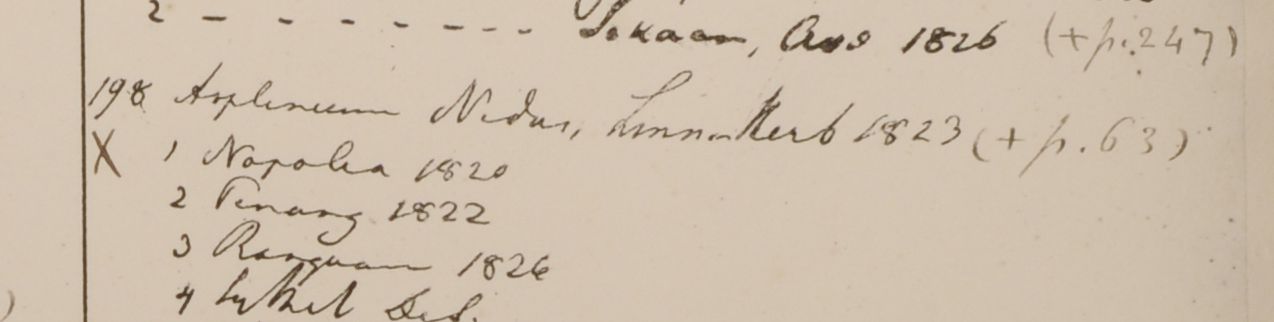 2 - - - - - - - - Segaan, Avs 1826 (+p. 247)
198 Asplenium Nidus, Linn. Herb 1823 (+ p. 63)
X 1 Napalia 1820
2 Penang 1822
3 Rangoon 1826
4 Sylhet Def.